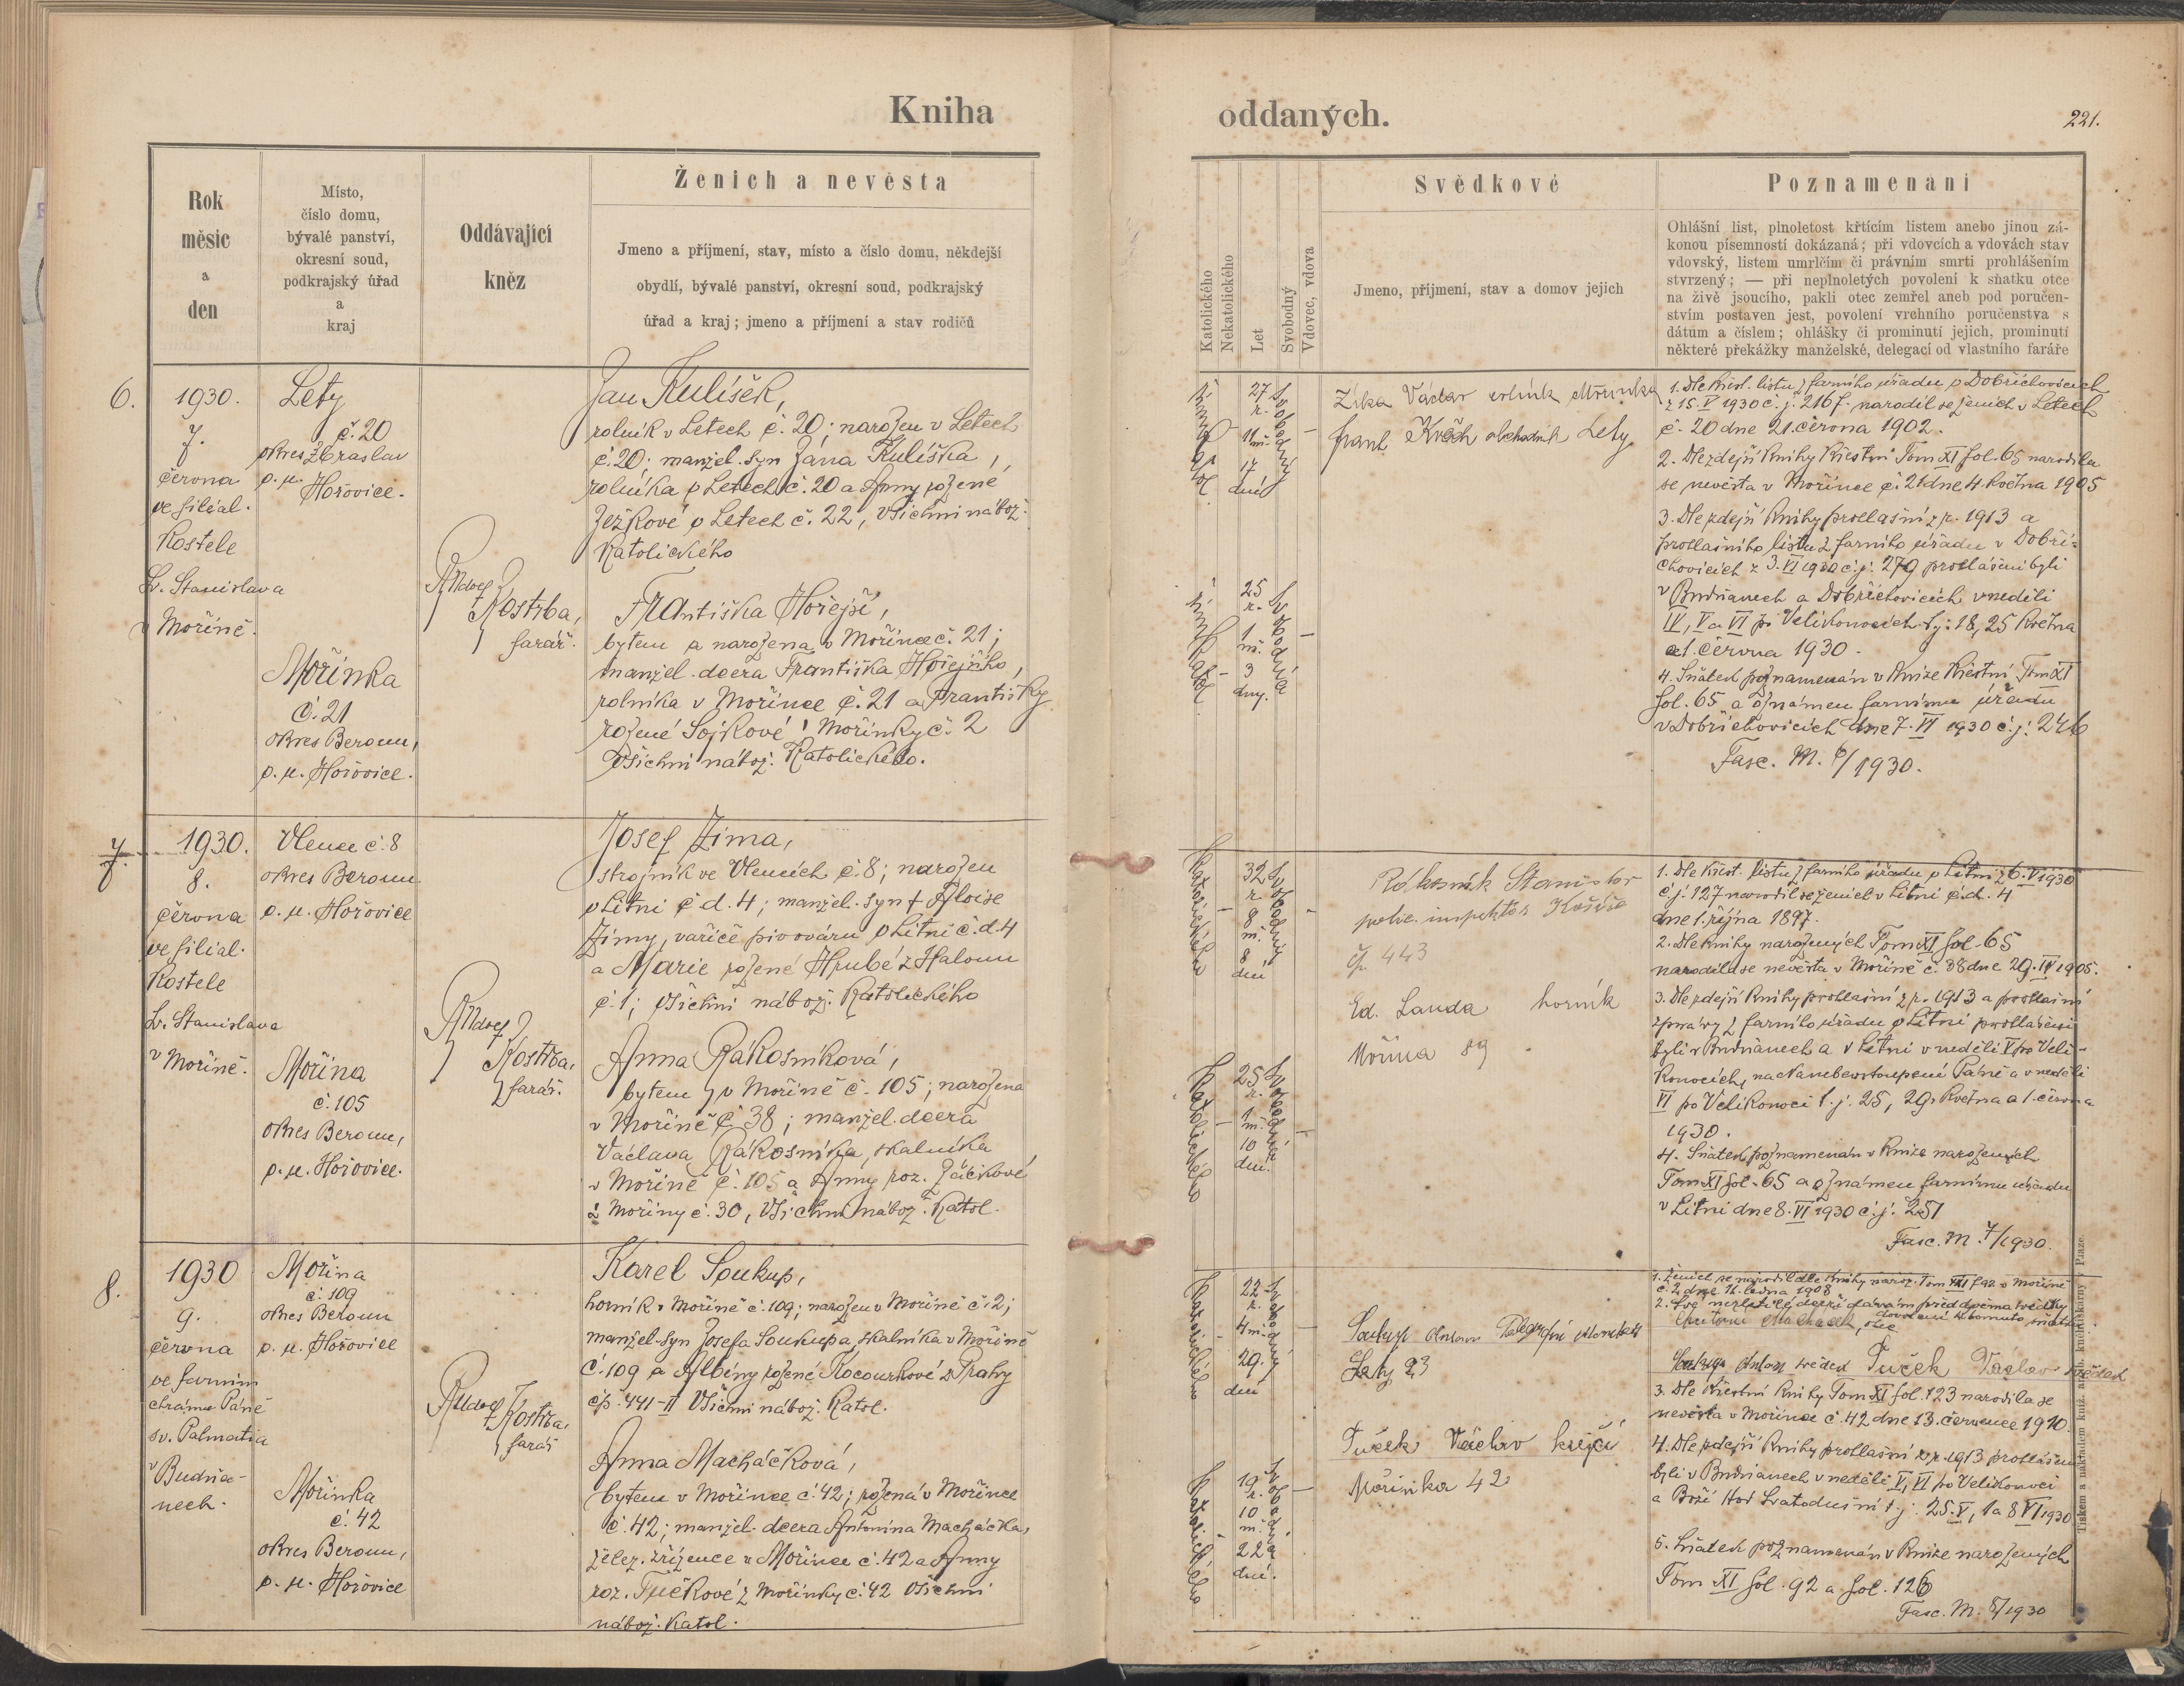 Kniha
oddaných.
221.
Rok
měsíc
a
den
Místo,
číslo domu,
bývalé panství,
okresní soud,
podkrajský úřad
a
kraj
Oddávající
kněz
Ženich a nevěsta
Jmeno a příjmení, stav, místo a číslo domu, někdejší
obydlí, bývalé panství, okresní soud, podkrajský
úřad a kraj; jmeno a příjmení a stav rodičů
Katolického
Nekatolického
Let
Svobodný
Vdovec, vdova
Svědkové
Jmeno, příjmení, stav a domov jejich
Poznamenání
Ohlášní list, plnoletost křtícím listem anebo jinou zá-
konou písemností dokázaná; při vdovcích a vdovách stav
vdovský, listem umrlčím či právním smrti prohlášením
stvrzený; — při neplnoletých povolení k sňatku otce
na živě jsoucího, pakli otec zemřel aneb pod poručen-
stvím postaven jest, povolení vrchního poručenstva s
dátum a číslem; ohlášky či prominutí jejich, prominutí
některé překážky manželské, delegací od vlastního faráře
6.
1930.
7.
června
ve filiál.
kostele
Sv. Stanislava
v Mořině.
Lety
č. 20
okres Zbraslav
p. ú. Hořovice.
Mořinka
č. 21
okres Beroun,
p. ú. Hořovice.
Rudolf
Kostrba,
farář.
Jan Kulíšek,
rolník v Letech č. 20; narozen v Letech
č. 20; manžel. syn Jana Kulíška,
rolníka v Letech č. 20 a Anny rozené
Ježkové v Letech č. 22, všichni nábož.
katolického
Františka Hořejší,
bytem a narozena v Mořince č. 21;
manžel. dcera Františka Hořejšího,
rolníka v Mořince č. 21 a Františky
rozené Sojkové z Mořinky č. 2
všichni nábož. katolického.
27
r.
11 m.
17
dnů
25
r.
1
m.
3
dny.
Zíka Václav rolník Mořinka
Frant. obchodník Lety
1. Dle křest. listu z farního úřadu v Dobřichovicích
z 15. V 1930 č. j. 216 f. narodil se ženich v Letech
č. 20 dne 21. června 1902.
2. Dle zdejší knihy křestní Tom XI fol. 65 narodila
se nevěsta v Mořince č. 21 dne 4. května 1905
3. Dle zdejší knihy prohlášní z r. 1913 a
prohlášního listu z farního úřadu v Dobři-
chovicích z 3. VI 1930 č. j. 279 prohlášeni byli
v Budňanech a Dobřichovicích v neděli
IV, V a VI po Velikonocích t. j. 18, 25 května
a 1. června 1930.
4. Sňatek poznamenán v knize křestní Tom XI
fol. 65 a oznámen farnímu úřadu
v Dobřichovicích dne 7. VI 1930 č. j. 246
Fasc. M. 6/1930.
7.
1930.
8.
června
ve filiál.
kostele
Sv. Stanislava
v Mořině.
Vlence č. 8
okres Beroun
p. ú. Hořovice
Mořina
č. 105
okres Beroun,
p. ú. Hořovice.
Rudolf
Kostrba,
farář.
Josef Zima,
strojník ve Vlencích č. 8; narozen
v Litni č. d. 4; manžel. syn † Aloise
Zimy, vařiče pivovaru v Litni č. d. 4
a Marie rozené Hrubé z Haloun
č. 1; všichni nábož. katolického
Anna Rákosníková,
bytem v Mořině č. 105; narozena
v Mořině č. 38; manžel. dcera
Václava Rákosníka, skalníka
v Mořině č. 105 a Anny roz. Žáčkové
z Mořiny č. 30, všichni nábož. katol.
katolického
32
r.
8
m.
8
dní
katolického
25
r.
1
m.
10
dní.
Rákosník Stanislav
polic. inspektor Košíře
čp. 443
Ed. Landa horník
Mořina 89
1. Dle křest. listu z farního úřadu v Litni z 6. V 1930
č. j. 127 narodil se ženich v Litni č. d. 4
dne 1. října 1897.
2. Dle knihy narozených Tom XI fol. 65
narodila se nevěsta v Mořině č. 38 dne 29. IV 1905.
3. Dle zdejší knihy prohlášní z r. 1913 a prohlášní
zprávy z farního úřadu v Litni prohlášeni
byli v Budňanech a v Litni v neděli V po Veli-
konocích, na Nanebevstoupení Páně a v neděli
VI po Velikonoci t. j. 25, 29. května a 1. června
1930.
4. Sňatek poznamenán v knize narozených
Tom XI fol. 65 a oznámen farnímu úřadu
v Litni dne 8. VI 1930 č. j. 251
Fasc. M. 7/1930.
8.
1930
9.
června
ve farním
chrámu Páně
sv. Palmatia
v Budňa-
nech.
Mořina
č. 109
okres Beroun
p. ú. Hořovice
Mořinka
č. 42
okres Beroun,
p. ú. Hořovice
Rudolf
Kostrba,
farář
Karel Soukup,
horník v Mořině č. 109; narozen v Mořině č. 2;
manžel. syn Josefa Soukupa, skalníka v Mořině
č. 109 a Albíny rozené Kocourkové z Prahy
čp. 441-II všichni nábož. katol.
Anna Macháčková,
bytem v Mořince č. 42; rozená v Mořince
č. 42; manžel. dcera Antonína Macháčka,
želez. zřízence v Mořince č. 42 a Anny
roz. Tučkové z Mořinky č. 42 všichni
nábož. katol.
katolického
22
r.
4 m.
29.
dní
katolického
19
r.
10
m.
22
dní.
Soukup Antonín
Lety 93
Tuček Václav krejčí
Mořinka 42
1. Ženich se narodil dle knihy naroz. Tom XI f. 92 v Mořině
č. 2 dne 16. ledna 1908
2. Své nezletilé dceři dávám před dvěma svědky
dovolení k tomuto sňatku.
Antonín Macháček, otec
Soukup Antonín svědek Tuček Václav svědek
3. Dle křestní knihy Tom XI fol. 123 narodila se
nevěsta v Mořince č. 42 dne 13. července 1910.
4. Dle zdejší knihy prohlášní z r. 1913 prohlášeni
byli v Budňanech v neděli V, VI po Velikonoci
a Boží Hod Svatodušní t. j. 25. V, 1 a 8 VI 1930
5. Sňatek poznamenán v knize narozených
Tom XI fol. 92 a fol. 123
Fasc. M. 8/1930